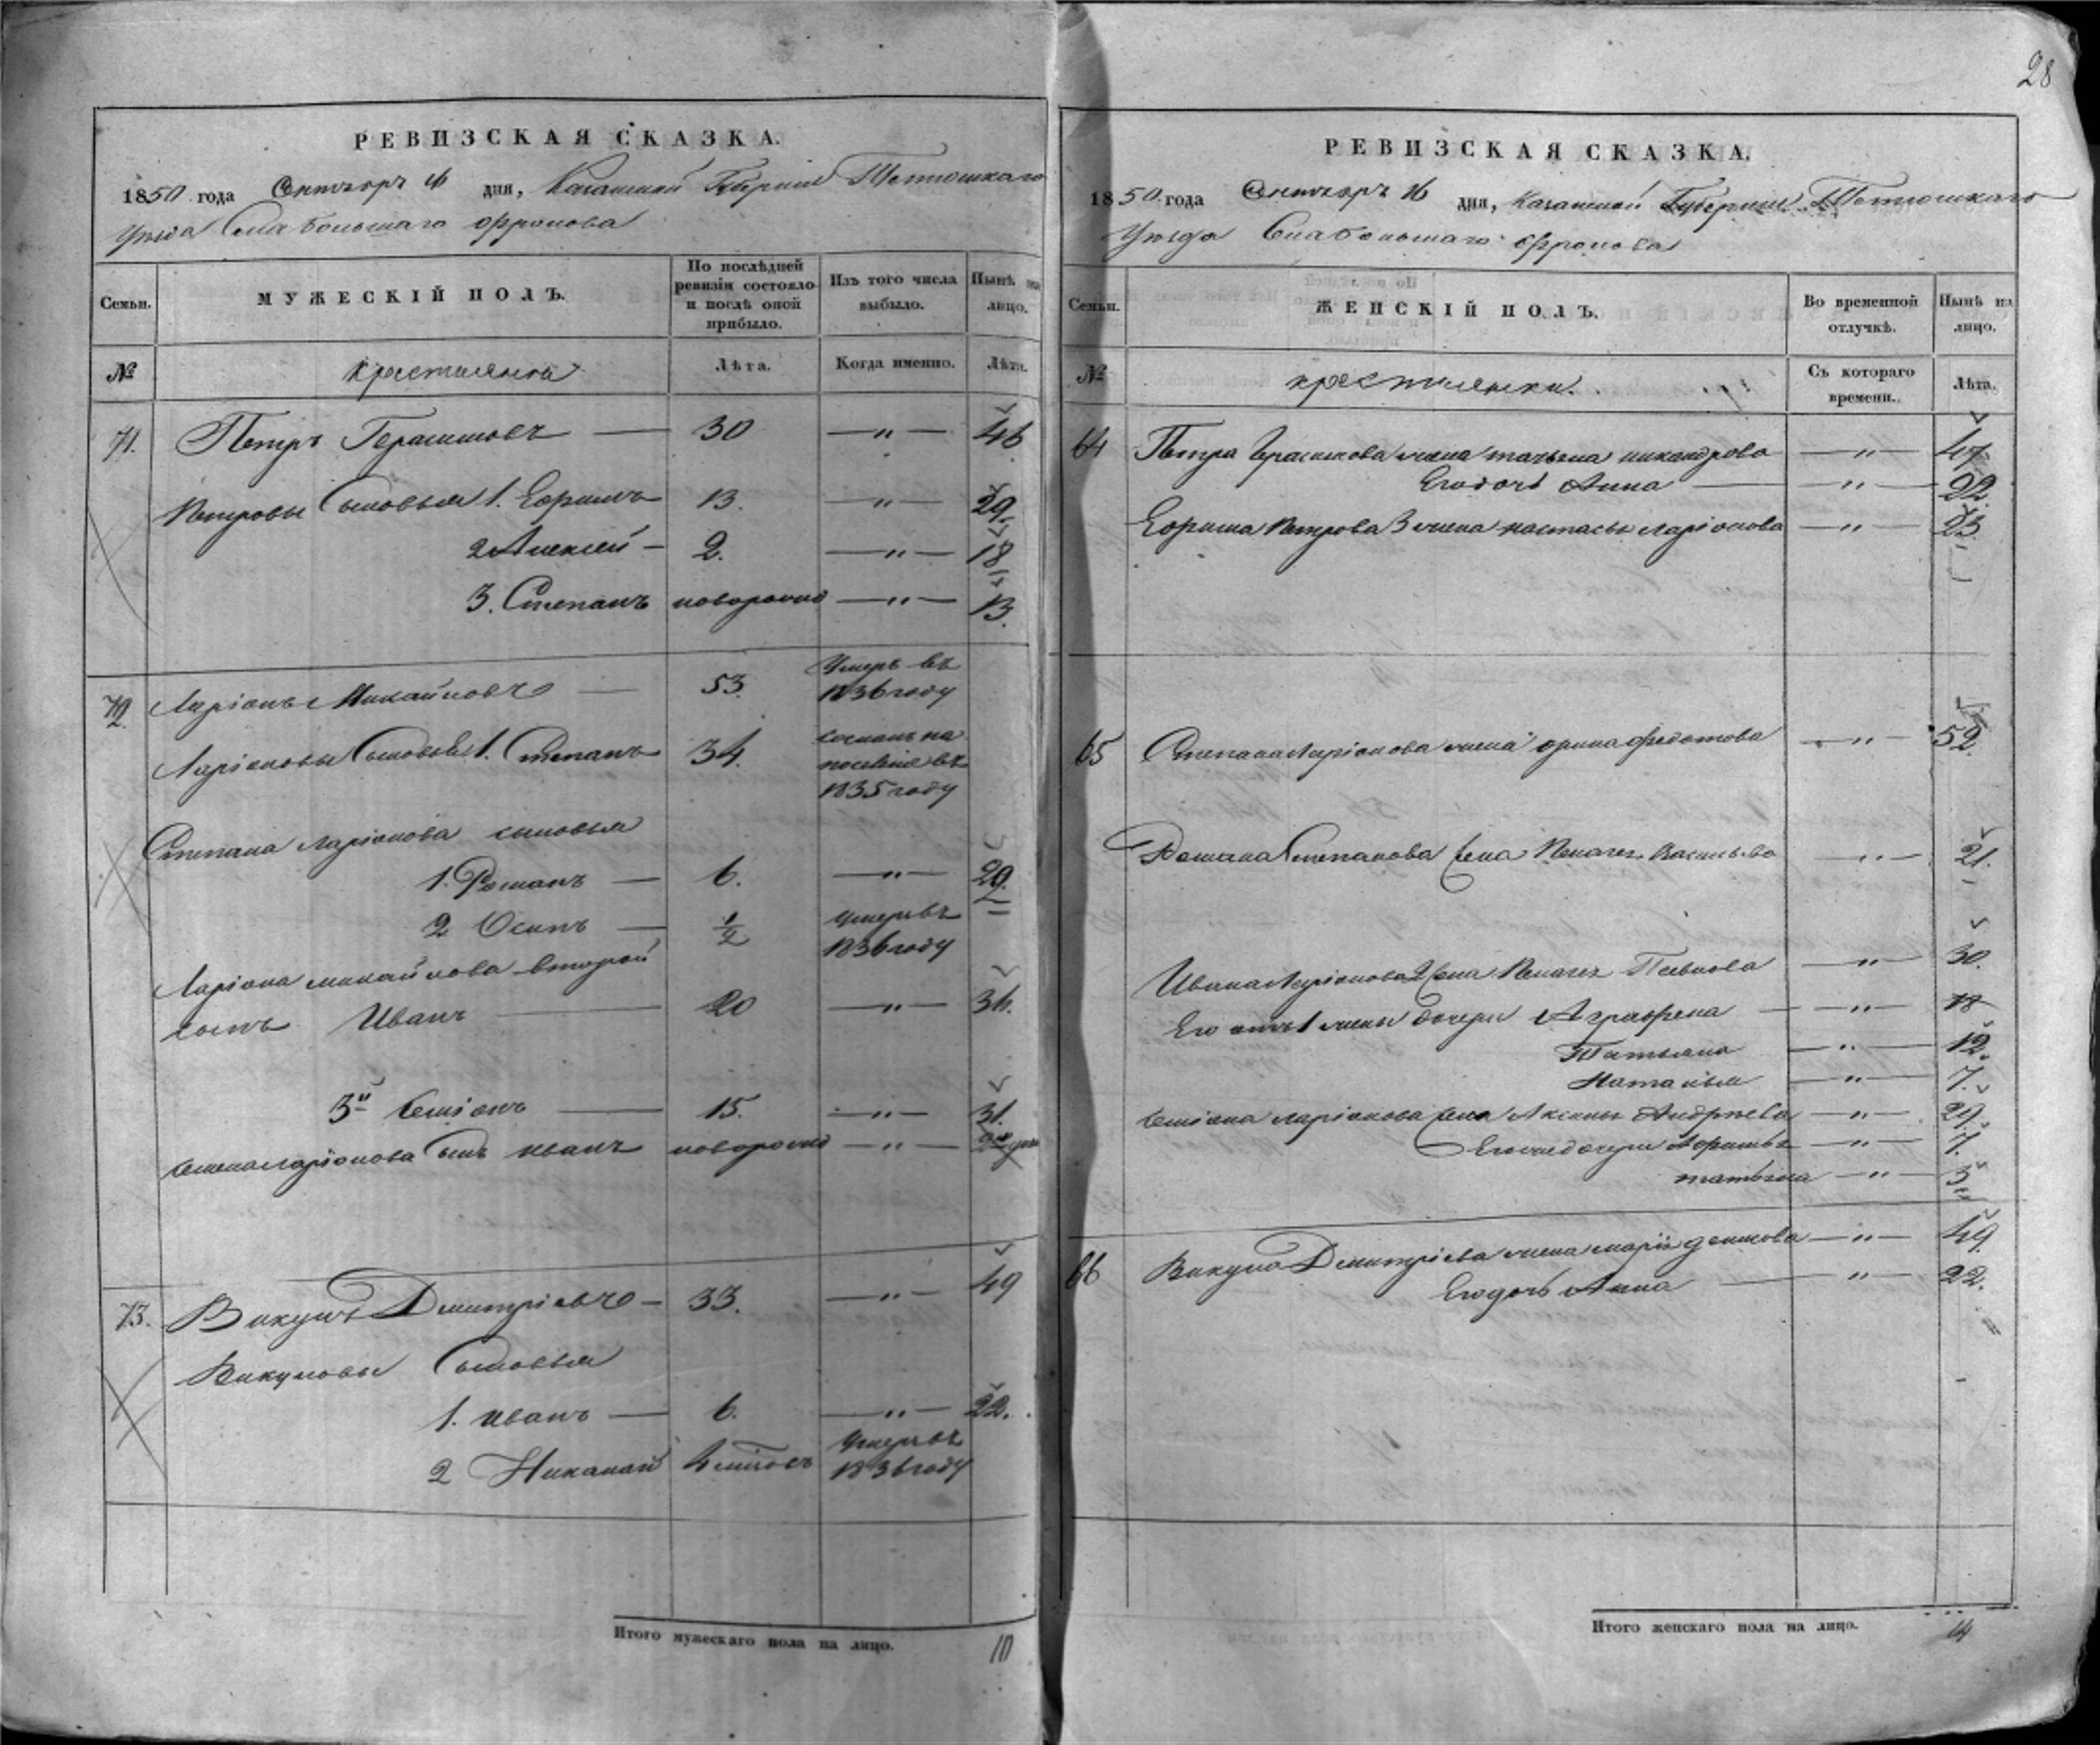 28
РЕВИЗСКАЯ СКАЗКА.
1850 года Сентября 16 дня, Казанской Губернии Тетюшскаго
Уѣзда Села Большаго Фролова
Семьи. МУЖЕСКІЙ ПОЛЪ. По послѣдней ревизіи состояло и послѣ оной прибыло. Изъ того числа выбыло. Нынѣ на лицо.
№ Крестьянъ Лѣта. Когда именно. Лѣта.
71. Петръ Герасимовъ — 30 — " — 46
Петровы Сыновья 1. Ефимъ 13. " 29.
2 Алексей — 2. — " — 18
3. Степанъ новорожно — " — 13.
72 Ларіонъ Михайловъ — 53. Умеръ въ
1836 году
Ларіоновы Сыновья 1. Степанъ 34. сосланъ на
поселеніе въ
1835 году
Степана Ларіонова сыновья
1. Романъ — 6. — " — 20.
2 Осипъ — 1/2 умеръ въ
1836 году
Ларіона михайлова второй
сынъ Иванъ — 20 — " — 36.
3й Семіонъ — 15. — " — 31.
Семена Ларіонова сынъ иванъ новорожно — " —
73. Викулъ Дмитріевъ — 33. — " — 49
Викуловы Сыновья
1. иванъ — 6. — " — 22.
2 Николай Умеръ въ
1836 году
Итого мужескаго пола на лицо. 10
РЕВИЗСКАЯ СКАЗКА.
1850 года Сентября 16 дня, Казанской Губернии Тетюшскаго
Уѣзда Села Большаго Фролова
Семьи. ЖЕНСКІЙ ПОЛЪ. Во временной отлучкѣ. Нынѣ на лицо.
№ крестьянки. Съ котораго времени. Лѣта.
64 Петра Герасимова жена татьяна никандрова — " — 47
Его дочь Анна — " — 22.
Ефима Петрова 3 жена настасья ларіонова — " — 23
65 Степана Ларіонова жена орина федотова — " — 52.
Романа Степанова жена Пелагея Васильева " — 21.
Ивана Ларіонова 2 жена Пелагея — " — 30.
Его отъ 1 жены дочери Аграфена — " — 18
Татьяна — " — 12.
Наталья — " — 7.
Семіона ларіонова жена Аксинья Андрѣева — " — 29.
Его же дочери — " — 7.
татьяна — " — 3
66 Викула Дмитріева жена марія — " — 49.
Его дочь Анна — " — 22.
Итого женскаго пола на лицо. 14